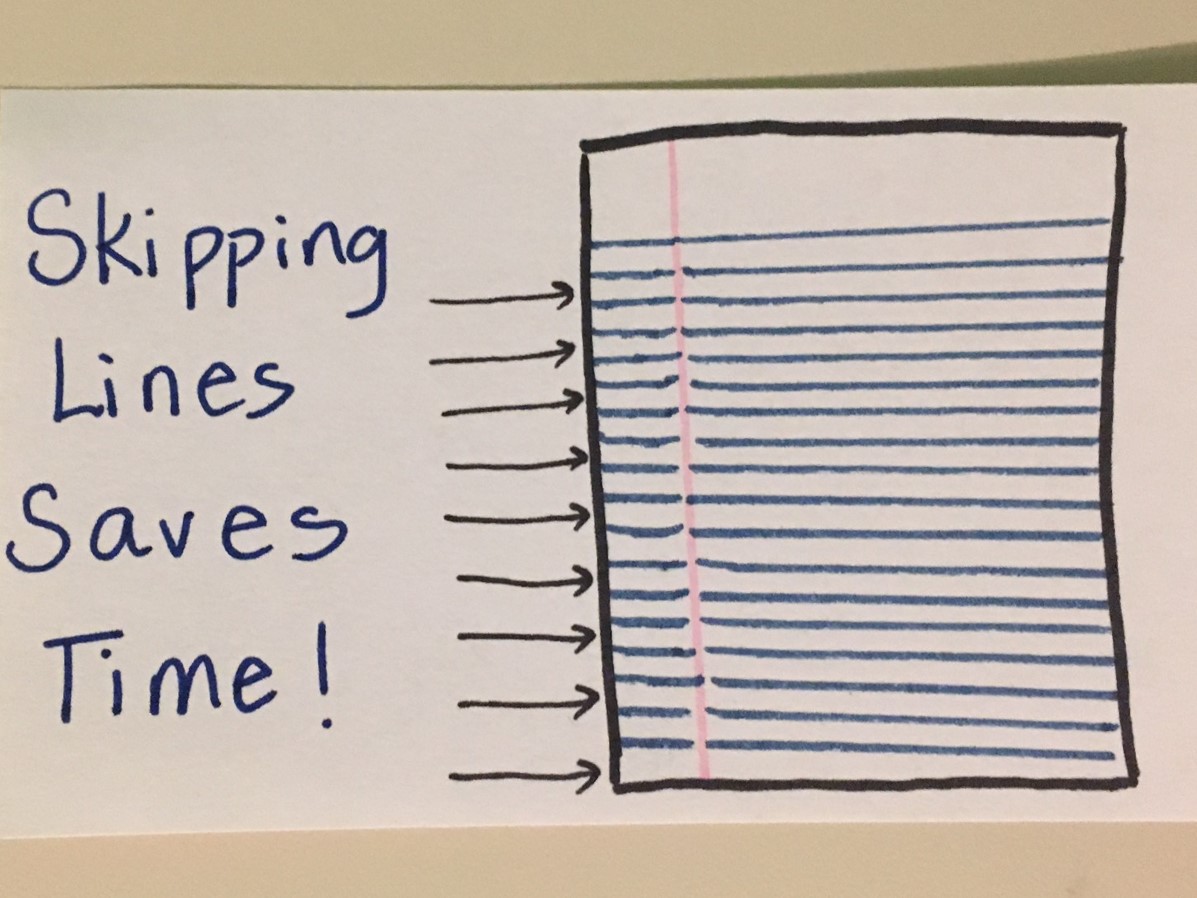 Skipping
Lines
Saves
Time!